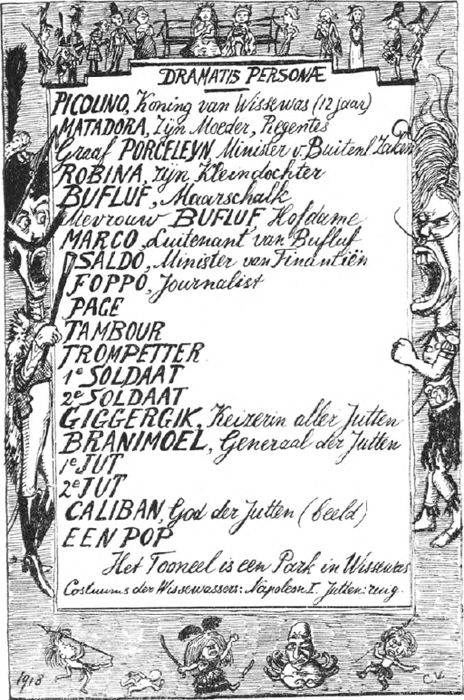 DRAMATIS PERSONÆ
PICOLINO, Koning van Wissewas (12 jaar)
MATADORA, Zijn Moeder, Regentes
Graaf PORCELEYN, Minister v. Buitenl Zaken
ROBINA, zijn Kleindochter
BUFLUF, Maarschalk
Mevrouw BUFLUF, Hofdame
MARCO, Luitenant van Bufluf
PSALDO, Minister van Financiën
FOPPO, Journalist
PAGE
TAMBOUR
TROMPETTER
1e SOLDAAT
2e SOLDAAT
GIGGERGIK, Keizerin aller Jutten
BRANIMOEL, Generaal der Jutten
1e JUT
2e JUT
CALIBAN, God der Jutten (beeld)
EEN POP
Het Tooneel is een Park in Wissewas
Costuums der Wissewassers: Napoleon I. Jutten:
1918
C.V.